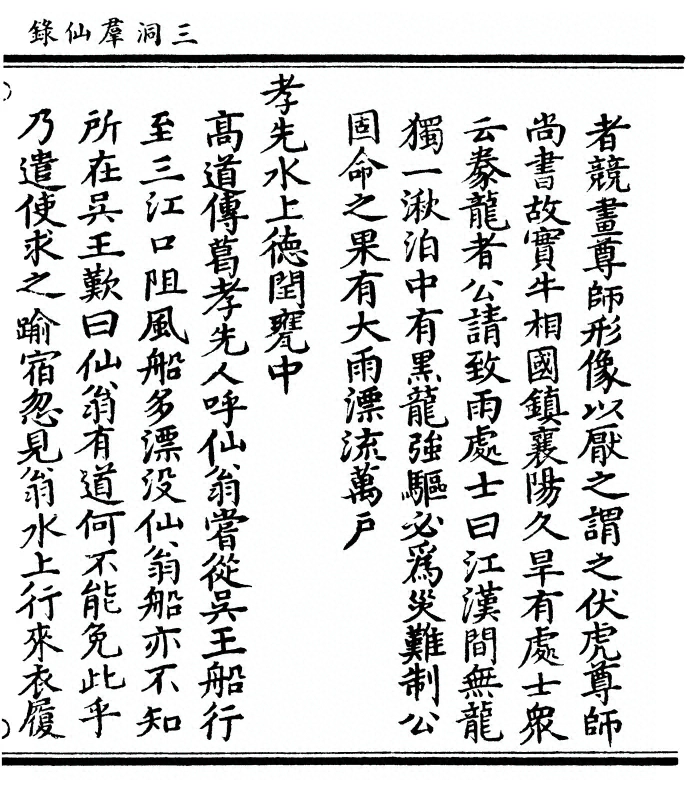 三洞羣仙錄
者競畫尊師形像以厭之謂之伏虎尊師
尚書故實牛相國鎮襄陽久旱有處士眾
云豢龍者公請致雨處士曰江漢間無龍
獨一湫泊中有黑龍強驅必爲災難制公
固命之果有大雨漂流萬戶
孝先水上德閏甕中
高道傳葛孝先人呼仙翁嘗從吳王船行
至三江口阻風船多漂没仙翁船亦不知
所在吳王歎曰仙翁有道何不能免此乎
乃遣使求之踰宿忽見翁水上行來衣履